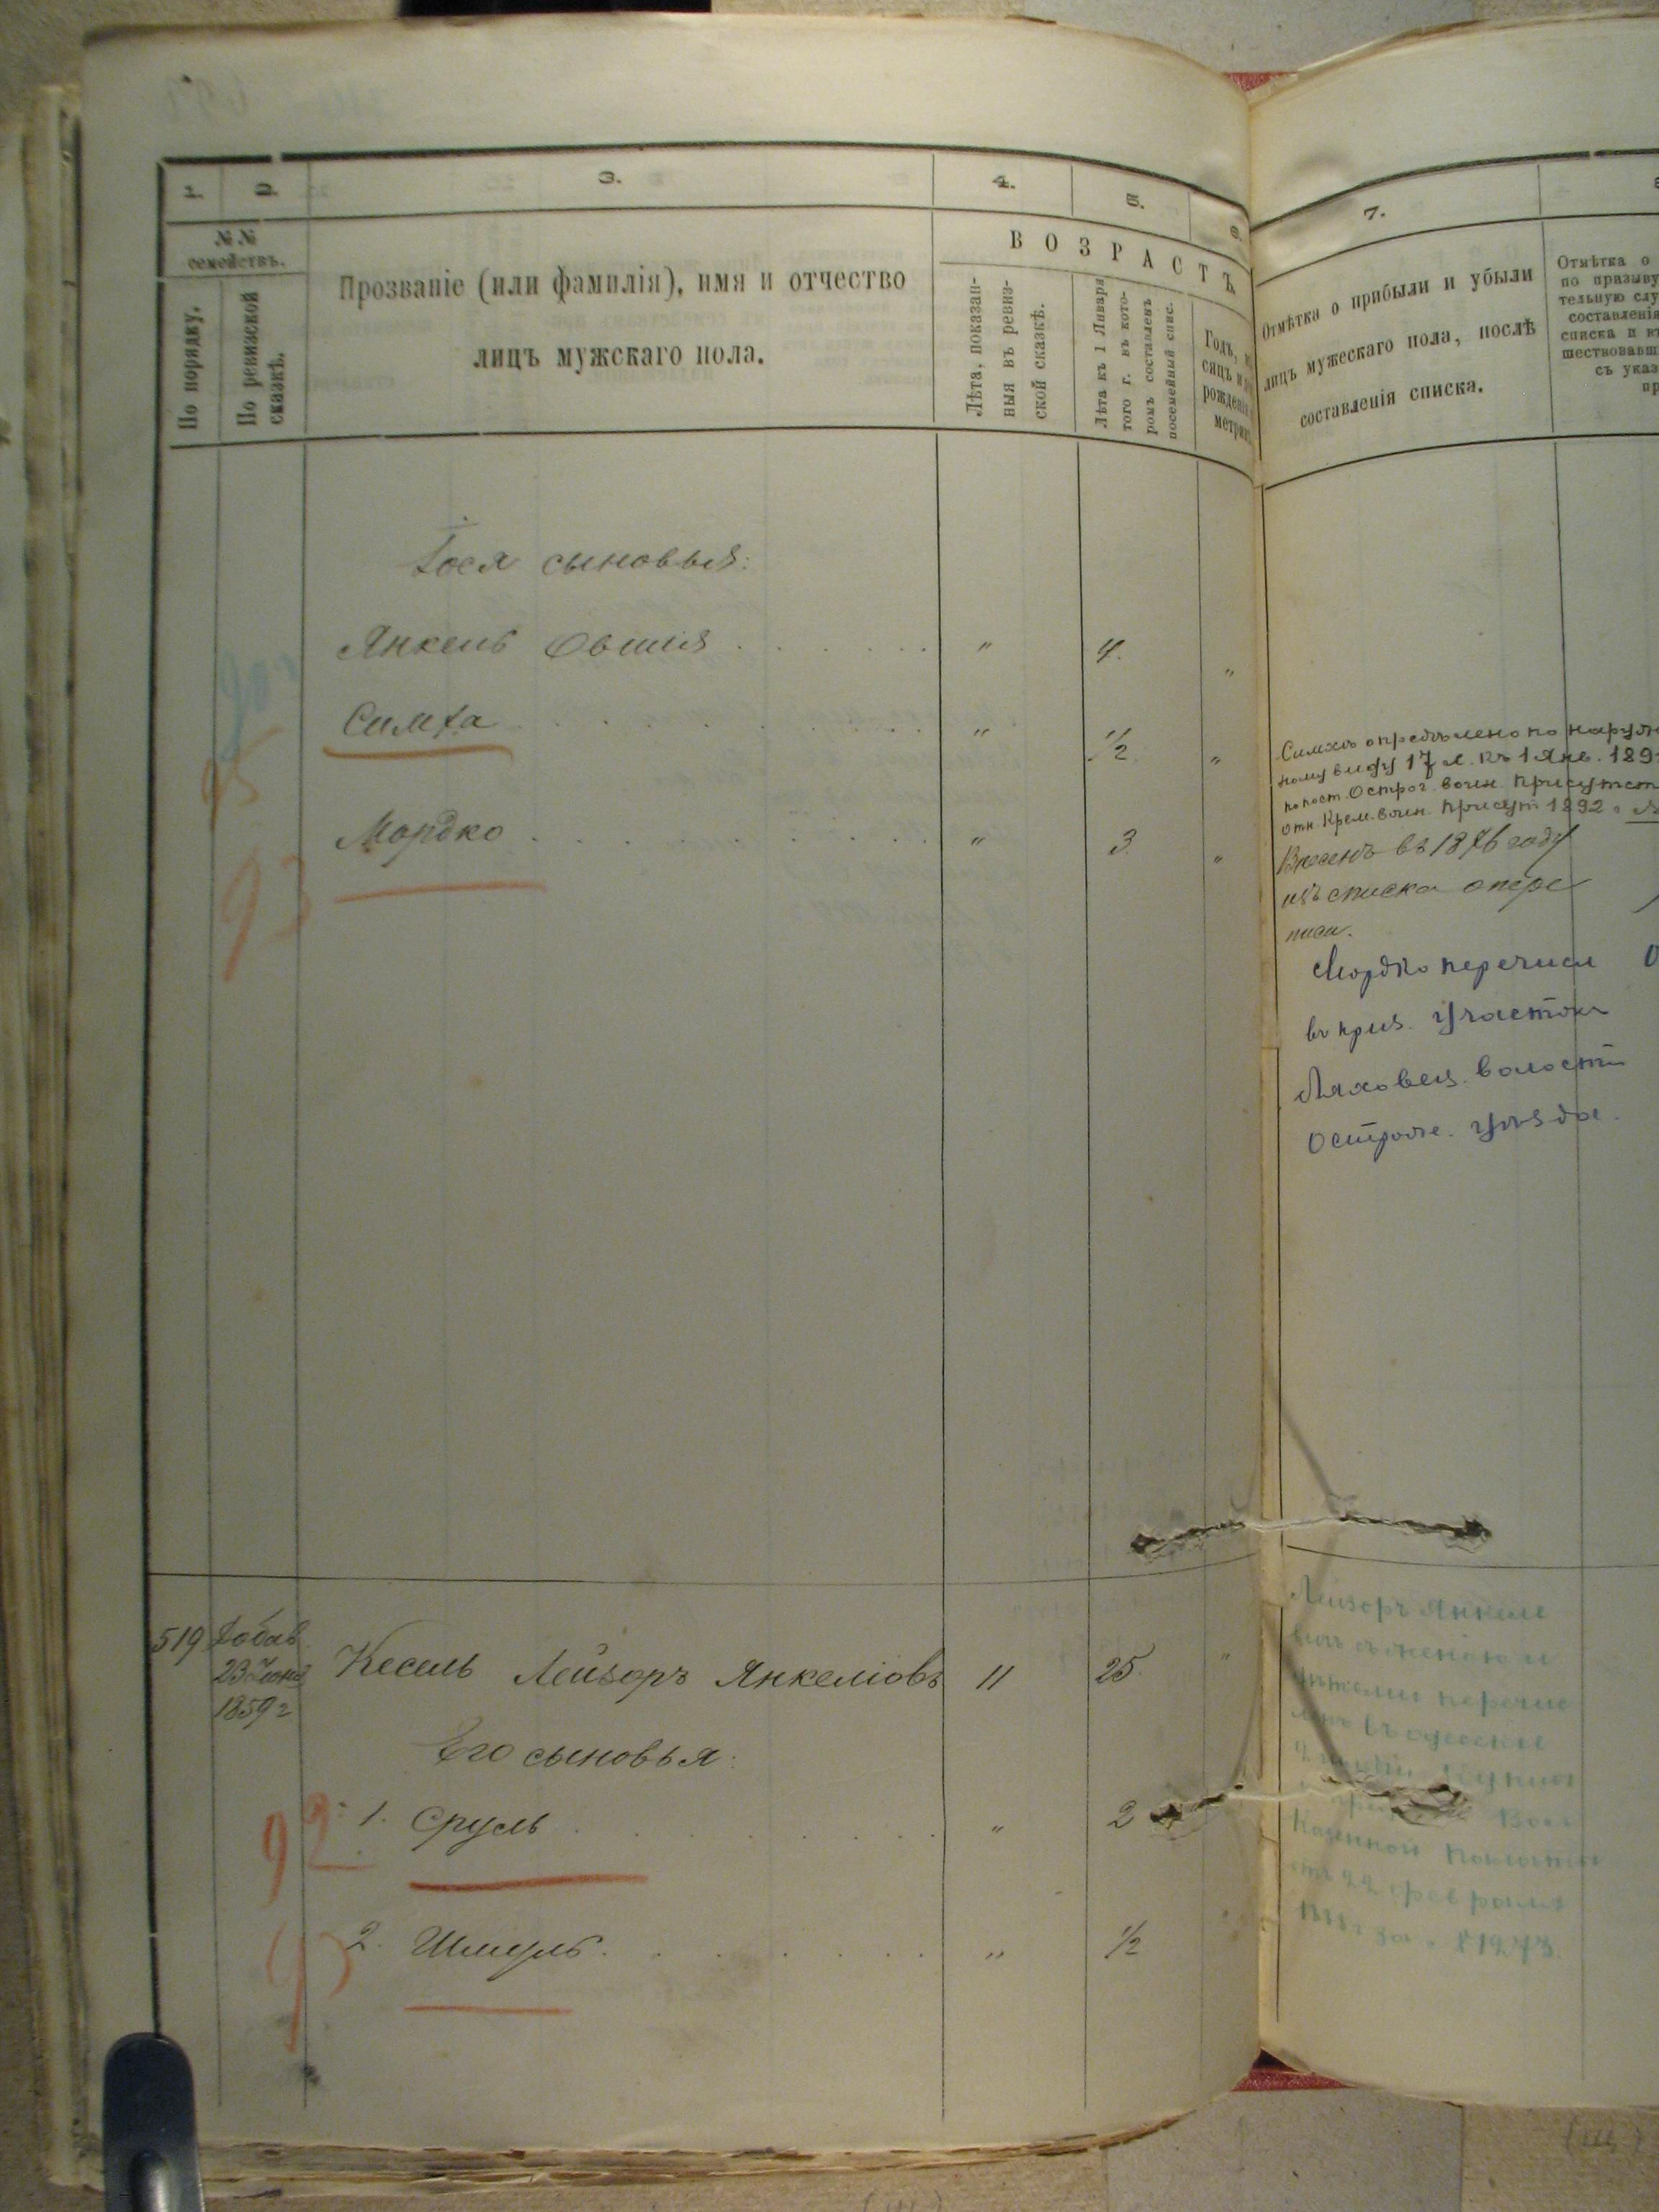 1.
2.
3.
4.
5.
6.
7.
№№
семействъ.
По порядку.
По ревизской
сказкѣ.
Прозваніе (или фамилія), имя и отчество
лицъ мужскаго пола.
ВОЗРАСТЪ.
Лѣта, показан-
ныя въ ревиз-
ской сказкѣ.
Лѣта къ 1 Января
того г. въ кото-
ромъ составленъ
посемейный спис.
Годъ,
сяцъ и
рожденія
метрик
Отмѣтка о прибыли и убыли
лицъ мужескаго пола, послѣ
составленія списка.
Отмѣтка о
по призыву
тельную слу
составленія
списка и
шествовавш
съ указ
пр
Іося сыновья:
Янкель Овшія . . . . . . . " 4. "
Симха . . . . . . . . " 1/2 "
95
Симхѣ опредѣлено по наруж
ному виду 17 л. къ 1 Янв. 189
по пост. Острог. воин. присутст
отн. Крем. воин. присут 1892 г
Мордко . . . . . . . . " 3. "
93
Внесенъ въ 1876 году
изъ списка опере
писи.
Мордко перечисл
въ приз. участокъ
Ляховец. волости
Острож. уѣзда.
519 Добав.
23 Іюня
1859 г
Кесель Лейзоръ Янкеліовъ 11 25. "
Его сыновья:
92 1. Сруль . . . . . . . . " 2
93 2. Шмуль . . . . . . . " 1/2
Лейзоръ Янкеле
вичъ съ женою и
дѣтьми перечис
ленъ въ одесскіе
Казенной Палаты
отъ 22 февраля
1888 г за №